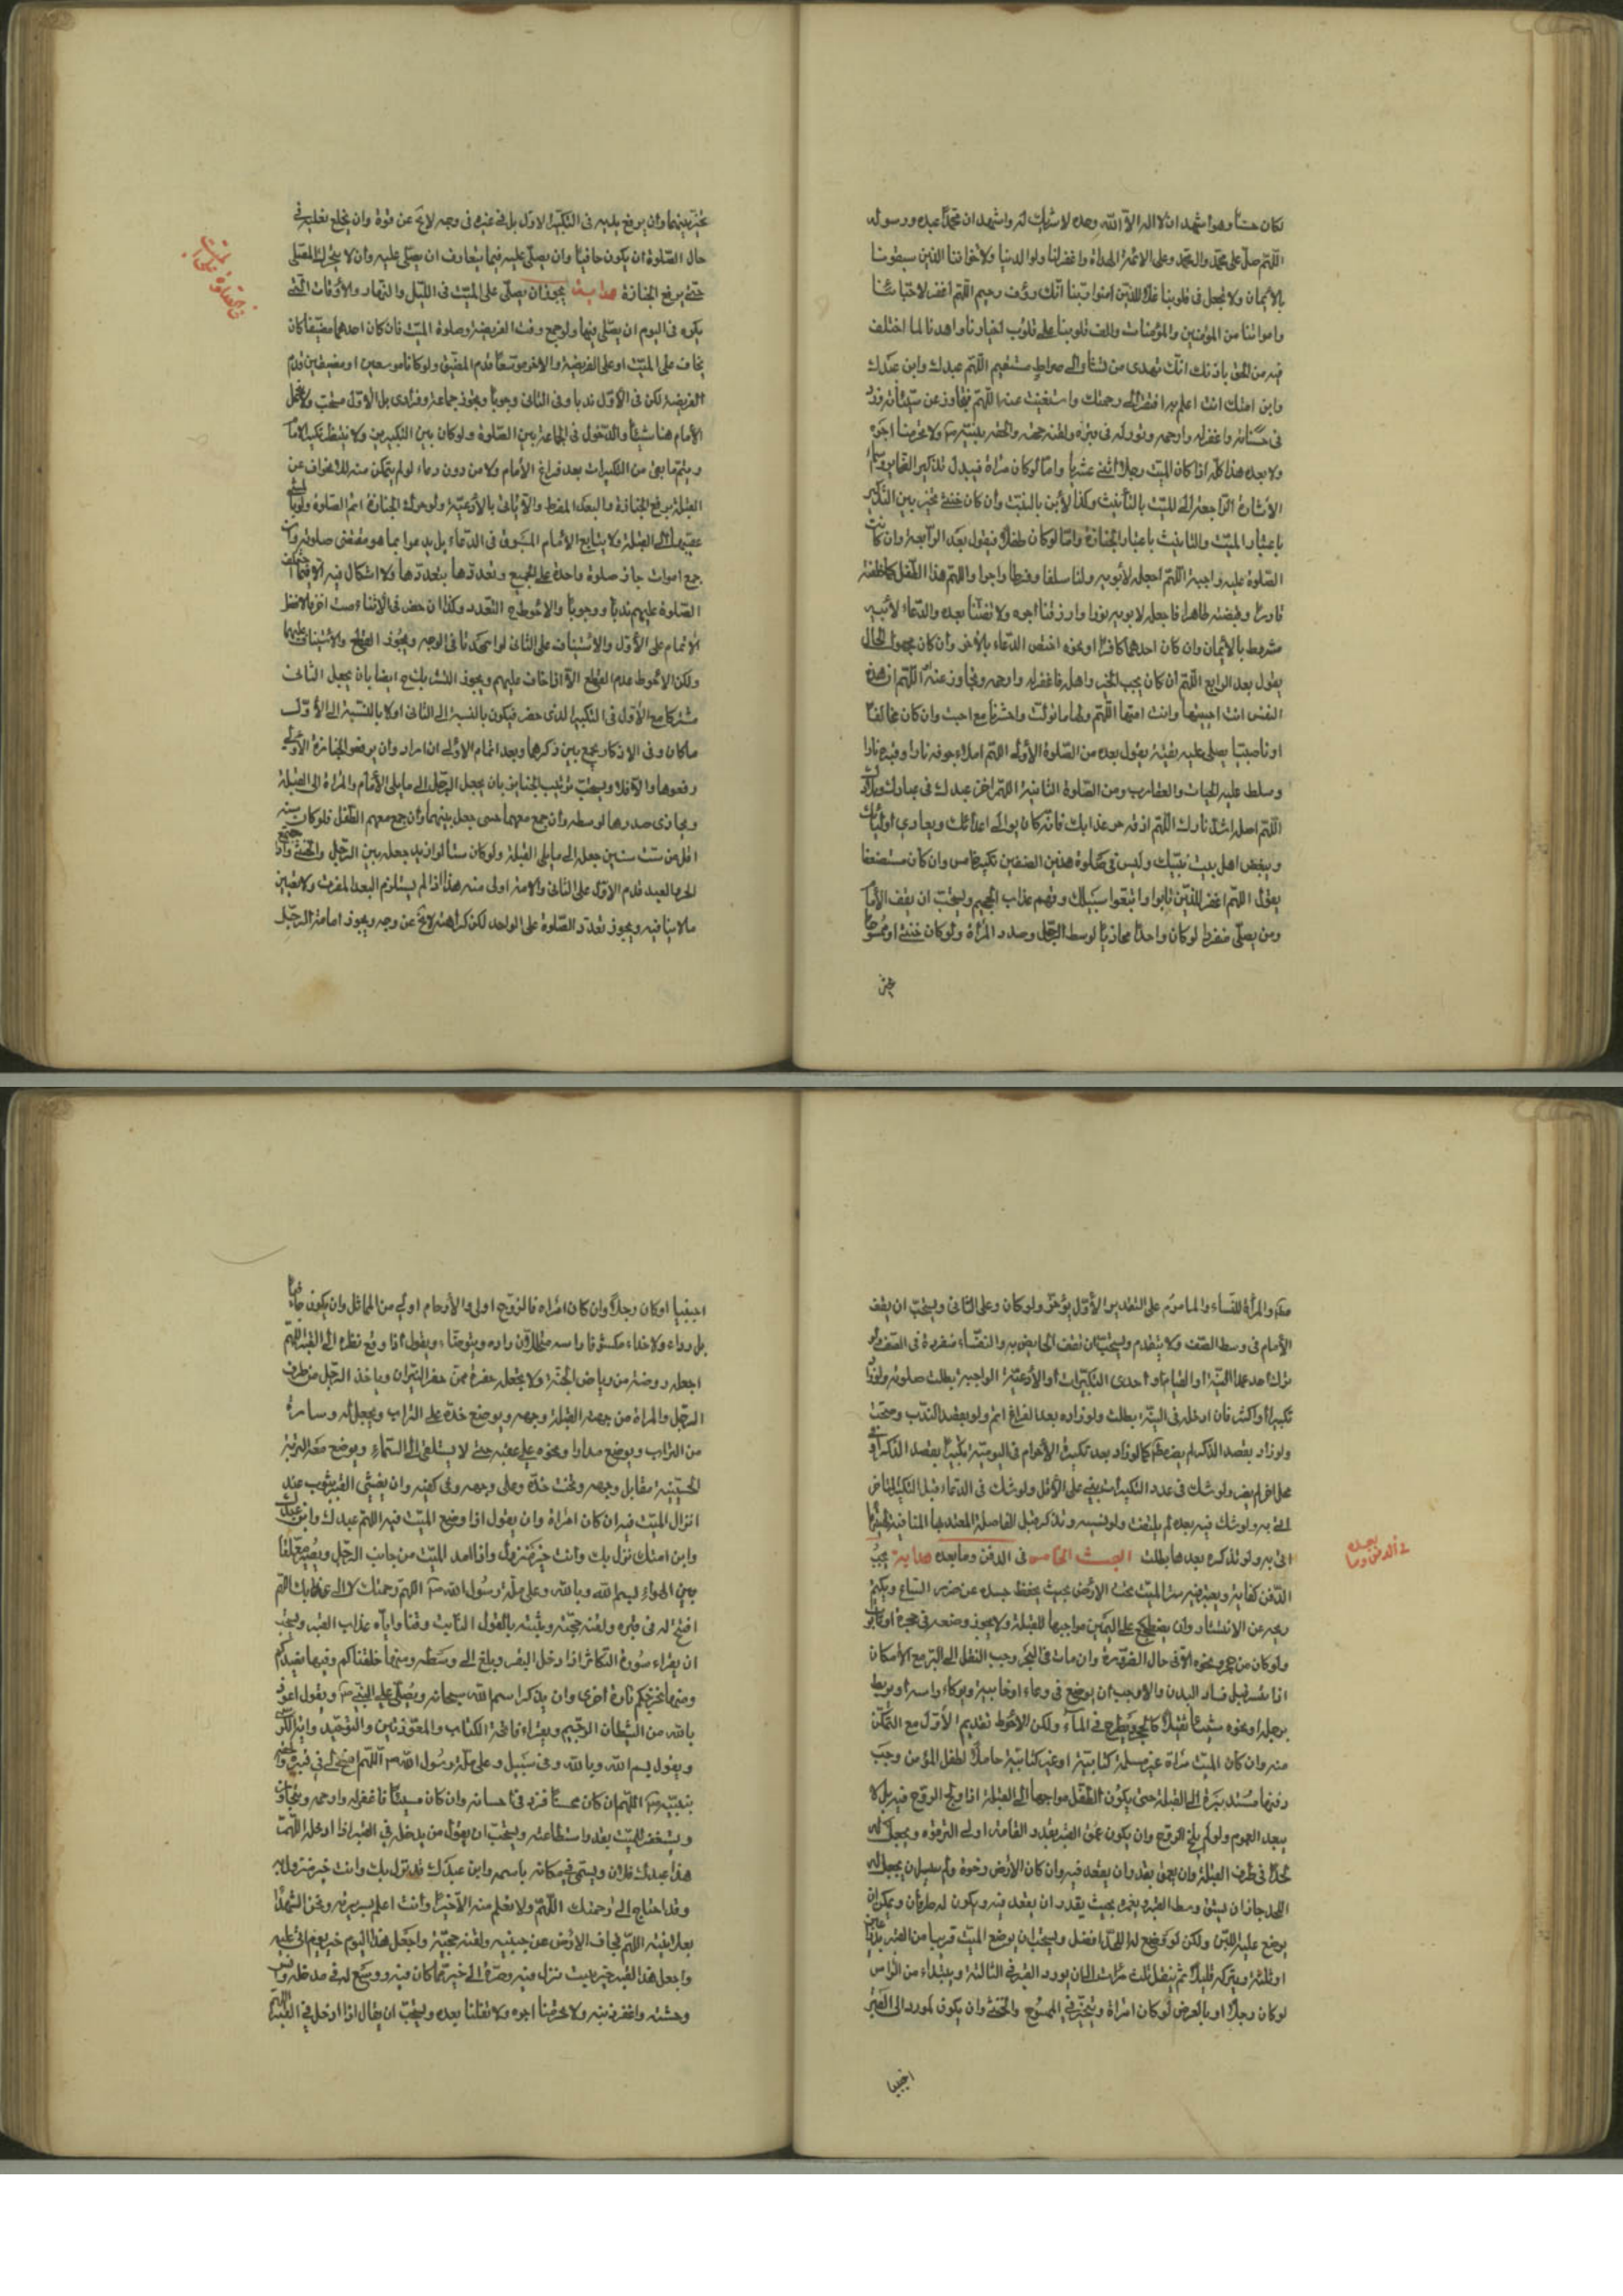 فكان حسنا وهو اشهد ان لا اله الا الله وحده لا شريك له واشهد ان محمدا عبده ورسوله
اللهم صل على محمد وال محمد وعلى الائمة الهداة واغفر لنا ولوالدينا ولاخواننا الذين سبقونا
بالايمان ولا تجعل فى قلوبنا غلا للذين امنوا ربنا انك رؤف رحيم اللهم اغفر لاحيائنا
وامواتنا من المؤمنين والمؤمنات والف قلوبنا على قلوب اخيارنا واهدنا لما اختلف
فيه من الحق باذنك انك تهدى من تشاء الى صراط مستقيم اللهم عبدك وابن عبدك
وابن امتك انت اعلم به افتقر الى رحمتك واستغنيت عنه اللهم فتجاوز عن سيئاته وزد
فى حسناته واغفر له وارحمه ونور له فى قبره ولقنه حجته والحقه بنبيه ولا تحرمنا اجره
ولا بعده هذا كله اذا كان الميت رجلا اثنى عشريا واما لو كان مراة فيبدل تذكير الضمائر
الاشارة الراجعة الى الميت بالتانيث وكذا الابن بالبنت وان كان خنثى تخير بين التذكير
باعتبار الميت والتانيث باعتبار الجنازة واما لو كان طفلا فيقول بعد الرابعة وان كانت
الصلوة عليه واجبة اللهم اجعله لابويه ولنا سلفا وفرطا واجرا واللهم هذا الطفل كما خلقته
قادرا وقبضته طاهرا فاجعل لابويه نورا وارزقنا اجره ولا تفتنا بعده والدعاء لابويه
مشروط بالايمان وان كان احدهما كافرا او نحوه اختص الدعاء بالاخر وان كان مجهول الحال
يقول بعد الرابع اللهم ان كان يحب الخير واهله فاغفر له وارحمه وتجاوز عنه اللهم ان هذه
النفس انت احييتها وانت امتها اللهم ولها ما تولت واحشرها مع احبت وان كان مخالفا
او ناصبيا يصلى عليه تقية يقول بعده من الصلوة الاولى اللهم املاء جوفه نارا وقبره نارا
وسلط عليه الحيات والعقارب ومن الصلوة الثانية اللهم اخز عبدك فى عبادك وبلادك
اللهم اصله اشد نارك اللهم اذقه حر عذابك فانه كان يوالى اعدائك ويعادي اوليائك
ويبغض اهل بيت نبيك وليس فى صلوة هذين الصنفين تكبير خامس وان كان مستضعفا
يقول اللهم اغفر للذين تابوا واتبعوا سبيلك وقهم عذاب الجحيم ويستحب ان يقف الامام
ومن يصلى منفردا لو كان واحدا محاذيا لوسط الرجل وصدر المراة ولو كان خنثى او ممسوحا
تخير بينهما وان يرفع يديه فى التكبيرة الاولى بل فى غيره فى وجه لا يخ عن قوة وان يخلع نعليه فى
حال الصلوة ان يكون حافيا وان يصلى عليه فيما يتعارف ان يصلى عليه وان لا يتحرك المصلى
حتى يرفع الجنازة هداية يجوز ان يصلى على الميت فى الليل والنهار والاوقات التى
يكره فى اليوم ان يصلى فيها ولو جمع وقت الفريضة وصلوة الميت فان كان احدهما مضيقا كان
يخاف على الميت او على الفريضة والاخر موسعا قدم المضيق ولو كانا موسعين او مضيقين قدم
الفريضة لكن فى الاول ندبا وفى الثانى وجوبا ويجوز جماعة وفرادى بل الاول مستحب ولا يتحمل
الامام هنا شيئا والدخول فى الجماعة بين الصلوة ولو كان بين التكبيرين ولا ينتظر تكبير الامام
ويتم ما بقى من التكبيرات بعد فراغ الامام ولا من دون دعاء لو لم يتمكن منه لخواف عن
القبلة برفع الجنازة والبعد المفرط والا ياتى بالادعية ولو حول الجنازة اتم الصلوة
جمع اموات جاز صلوة واحدة على الجميع وتعددها بتعددها ولا اشكال فيه
الصلوة عليهم ندبا ووجوبا والاحوط ح التعدد وكذا ان حضر فى الاثناء ميت اخر بالافضل
الاتمام على الاول والاستيناف على الثانى لو امكنا فى الوجه ويجوز القطع والاستيناف عليهما
ولكن الاحوط عدم القطع الا اذا خاف عليهم ويجوز التشريك ح ايضا بان يجعل الثانى
مشتركا مع الاول فى التكبير الذى حضر فيكون بالنسبة الى الثانى اولا بالنسبة الى الاول
ما كان وفى الاذكار يجمع بين ذكرهما وبعد اتمام الاولى ان اراد وان يرفعوا الجنازة الاولى
رفعوها والا فلا ويستحب ترتيب الجنايز بان يجعل الرجل الى ما يلى الامام والمراة الى القبلة
ويحاذى صدرها لوسطه وان جمع معهما خنثى جعل بينهما وان جمع معهم الطفل فلو كان سنه
اقل من ست سنين جعل الى ما يلى القبلة ولو كان ستا او ازيد جعل بين الرجل والخنثى واذا اجتمع
الحر والعبد قدم الاول على الثانى والامة اولى منه هذا اذا لم يستلزم البعد المفرط ولا تعيين
ما لا ينافيه ويجوز تعدد الصلوة على الواحد لكن كراهته لا يخ عن وجه ويجوز امامة الرجل
مقدم والمراة للنساء والماموم على التقديم والاول يؤخر ولو كان وعلى الثانى ويستحب ان يقف
الامام فى وسط الصف ولا يتقدم ويستحب ان تقف الحايض والنفساء منفردة فى الصف ولو
ترك احد عمدا النية او القيام او احدى التكبيرات او الادعية الواجبة بطلت صلوته ولو زاد
تكبيرة او اكثر فان ادخله فى النية بطلت ولو زاده بعد الفراغ اتم ولو بقصد الندب وصحت
ولو زاد بقصد الذكر لم يضر كما لو زاد بعد تكبيرة الاحرام فى اليومية تكبيرا بقصد الذكر او
محل اخر لم يضر ولو شك فى عدد التكبيرات بنى على الاقل ولو شك فى الدعاء قبل التكبير المتاخر
اتى به ولو شك فيه بعده لم يلتفت ولو نسيه وتذكر قبل الفاصلة المعتد بها المنافية
اتى به ولو تذكره بعدها بطلت البحث الخامس فى الدفن وما بعده هداية يجب
الدفن كفاية ويعتبر فيه ستر الميت تحت الارض بحيث يحفظ جسده عن ضرر السباع ويكتم
ريحه عن الانتشار وان يضطجع على اليمين مواجها للقبلة ولا يجوز وضعه فى حجرة او تابوت
ولو كان من حجر ونحوه الا فى حال الضرورة وان مات فى البحر وجب النقل الى البر مع الامكان
اذا تيسر قبل فساد البدن والا وجب ان يوضع فى وعاء او خابية ويوكاء راسه او يربط
برجله او نحوه شيئا ثقيلا كالحجر ويطرح فى الماء ولكن الاحوط تقديم الاول مع التمكن
منه وان كان الميت مراة غير مسلمة كتابية او غير كتابية حاملا لطفل المؤمن وجب
دفنها مستدبرة الى القبلة حتى يكون الطفل مواجها الى القبلة اذا ولج الروح فيه بل لا
يبعد العموم ولو لم يلج الروح وان يكون عمق القبر بقدر القامة او الى الترقوة ويجعل له
لحدا فى طرف القبلة وان يعمق بقدر ان يقعد فيه وان كان الارض رخوة ولم يمكن ان يجعل له
اللحد جاز ان يشق وسط القبر ويحفره بحيث يقدر ان يقعد فيه ويكون له طرفان ويمكن ان
يوضع عليه اللبن ولكن لو وضع له اللحد افضل ويستحب ان يوضع الميت قريبا من القبر بذراعين
او ثلثة ويتركه قليلا ثم ينقل ثلث مرات الى ان يورد القبر فى الثالثة ويبتداء من الراس
لو كان رجلا او بالعرض لو كان امراة ويتخير فى الممسوح والخنثى وان يكون لمورد الى القبر
اجنبيا
اجنبيا لو كان رجلا وان كان امراة فالزوج اولى والارحام اولى من المماثل وان يكون حافيا
بل رداء ولا حذاء مكشوفا راسه محلل الازاره ويتوضاء ويقول اذا وقع نظره الى القبر اللهم
اجعله روضة من رياض الجنة ولا تجعله حفرة من حفر النيران وياخذ الرجل من طرف
الرجل والمراة من جهة القبلة وجهه ويوضع خده على التراب ويجعل له وسادة
من التراب ويوضع مدارا ونحوه على عقبه حتى لا يستلقى الى السماء ويوضع معه التربة
الحسينية مقابل وجهه وتحت خده وعلى وجهه وفى كفنه وان يغشى القبر بثوب عند
انزال الميت فيه ان كان امراة وان يقول اذا وضع الميت فيه اللهم عبدك وابن عبدك
وابن امتك نزل بك وانت خير منزول واذا امد الميت من جانب الرجل ويصير معلقا
بين الهواء بسم الله وبالله وعلى ملة رسول الله اللهم رحمتك لا الى عذابك اللهم
افتح له فى قبره ولقنه حجته وثبته بالقول الثابت وقنا واياه عذاب القبر ويستحب
ان يقراء سورة التكاثر اذا دخل القبر وبلغ الى وسطه ومنها خلقناكم وفيها نعيدكم
ومنها نخرجكم تارة اخرى وان يذكر اسم الله سبحانه ويصلى على النبى ويقول اعوذ
بالله من الشيطان الرجيم ويقراء فاتحة الكتاب والمعوذتين والتوحيد واية الكرسى
ويقول بسم الله وبالله وفى سبيل وعلى ملة رسول الله اللهم افسح له فى قبره والحقه
بنبيه اللهم ان كان محسنا فزد فى احسانه وان كان مسيئا فاغفر له وارحمه وتجاوز عنه
ويستغفر للميت بقدر استطاعته ويستحب ان يقول من يدخله فى القبر اذا ادخله اللهم
هذا عبدك فلان ويسمى فى مكانه باسمه وابن عبدك قد نزل بك وانت خير منزول به
وقد احتاج الى رحمتك اللهم ولا نعلم منه الا خيرا وانت اعلم بسريرته ونحن الشهداء
بعلانيته اللهم فجاف الارض عن جنبيه ولقنه حجته واجعل هذا اليوم خير يوم اتى عليه
واجعل هذا القبر خير بيت نزل فيه وصيره الى خير مما كان فيه ووسع له فى مدخله وانس
وحشته واغفر ذنبه ولا تحرمنا اجره ولا تضلنا بعده ويستحب ان يقال اذا ادخل فى القبر اللهم
فى الدفن وما بعده